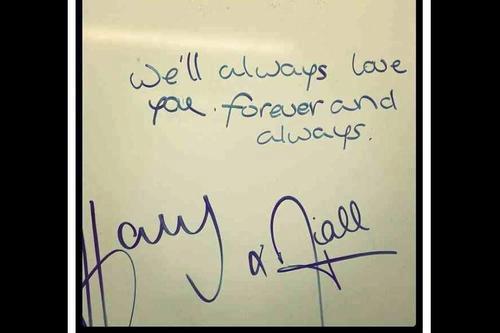 we'll always love
you. forever and
always.
Harry & Niall